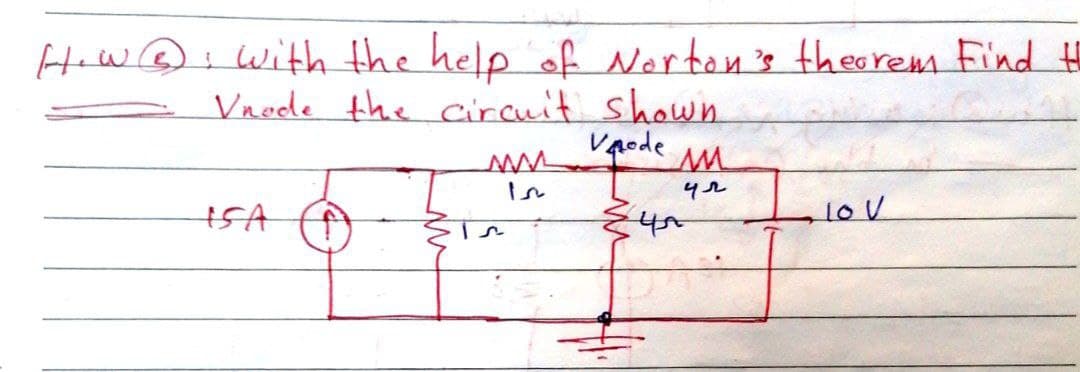 H.W ⑤ : with the help of Norton's theorem Find
Vnode the circuit shown
Vnode
1Ω
4Ω
15A
1Ω
4Ω
10 V